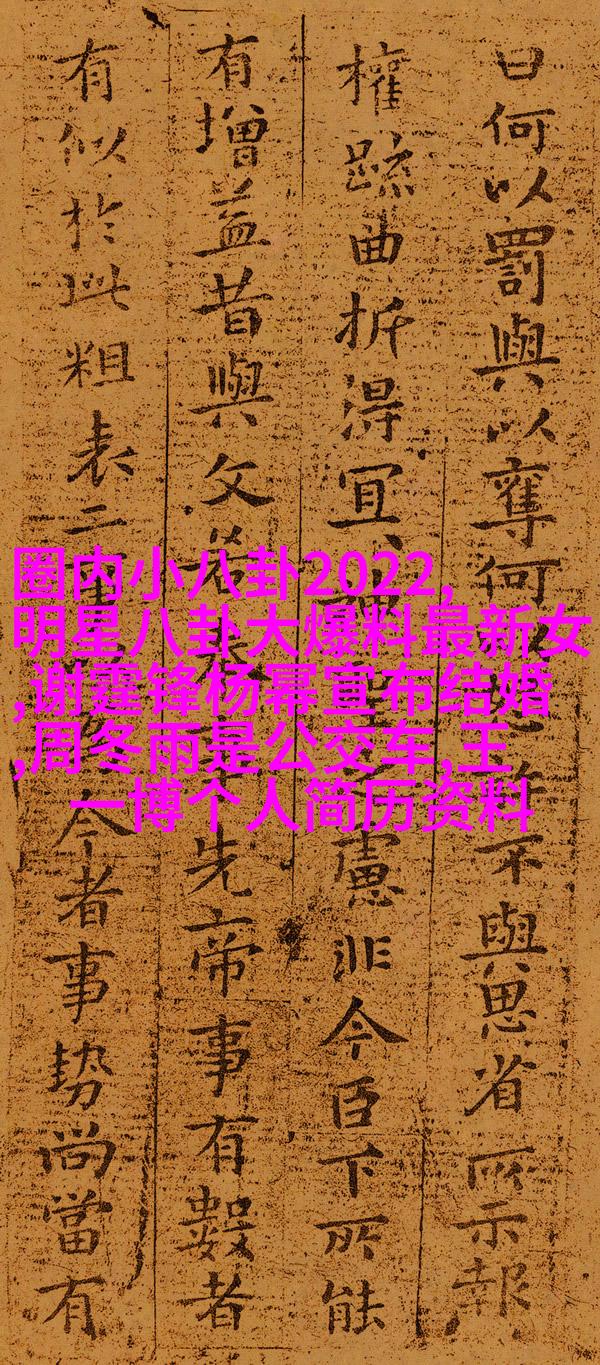 曰何以罰與以奪何許不與思省所示報
權踈曲折得冝神聖之慮非今臣下所能
有增益昔與文若奉事先帝事有數者
有似於此粗表二今者事勢尚當有
圈内小八卦2022,
明星八卦大爆料最新女
,谢霆锋杨幂宣布结婚
,周冬雨是公交车,王
一博个人简历资料